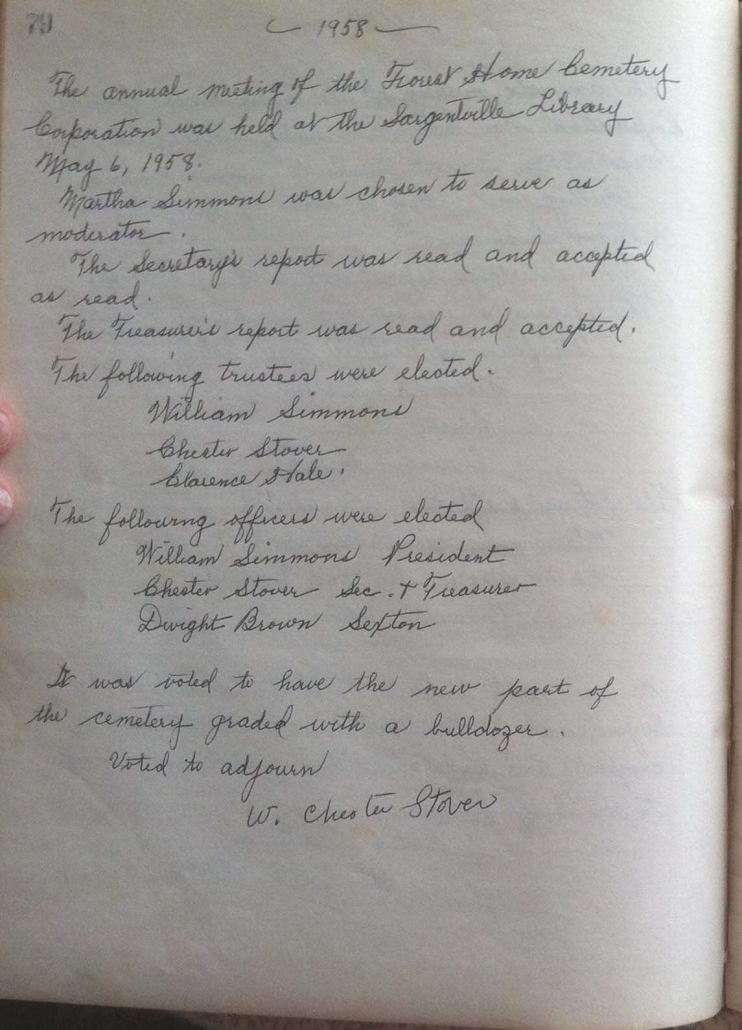 70
1958
The annual meeting of the Forest Home Cemetery
Corporation was held at the Sargentville Library
May 6, 1958.
Martha Simmons was chosen to serve as
moderator.
The Secretary's report was read and accepted
as read.
The Treasurer's report was read and accepted.
The following trustees were elected.
William Simmons
Chester Stover
Clarence Hale.
The following officers were elected
William Simmons President
Chester Stover Sec. + Treasurer
Dwight Brown Sexton
It was voted to have the new part of
the cemetery graded with a bulldozer.
Voted to adjourn
W. Chester Stover